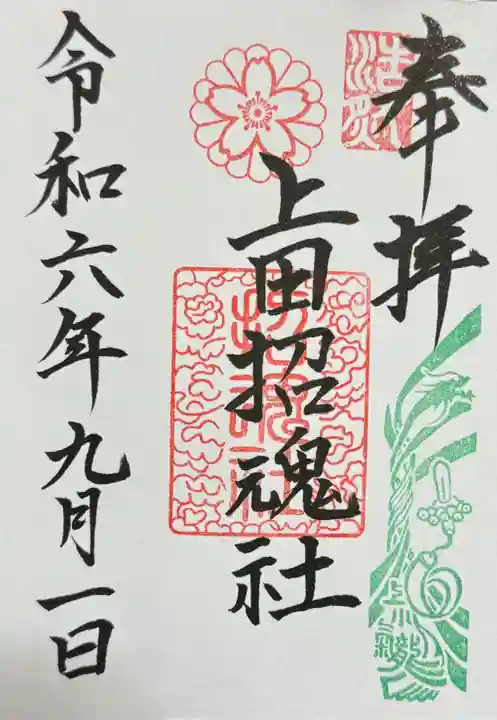 奉拝
上田招魂社
招魂社
令和六年九月一日